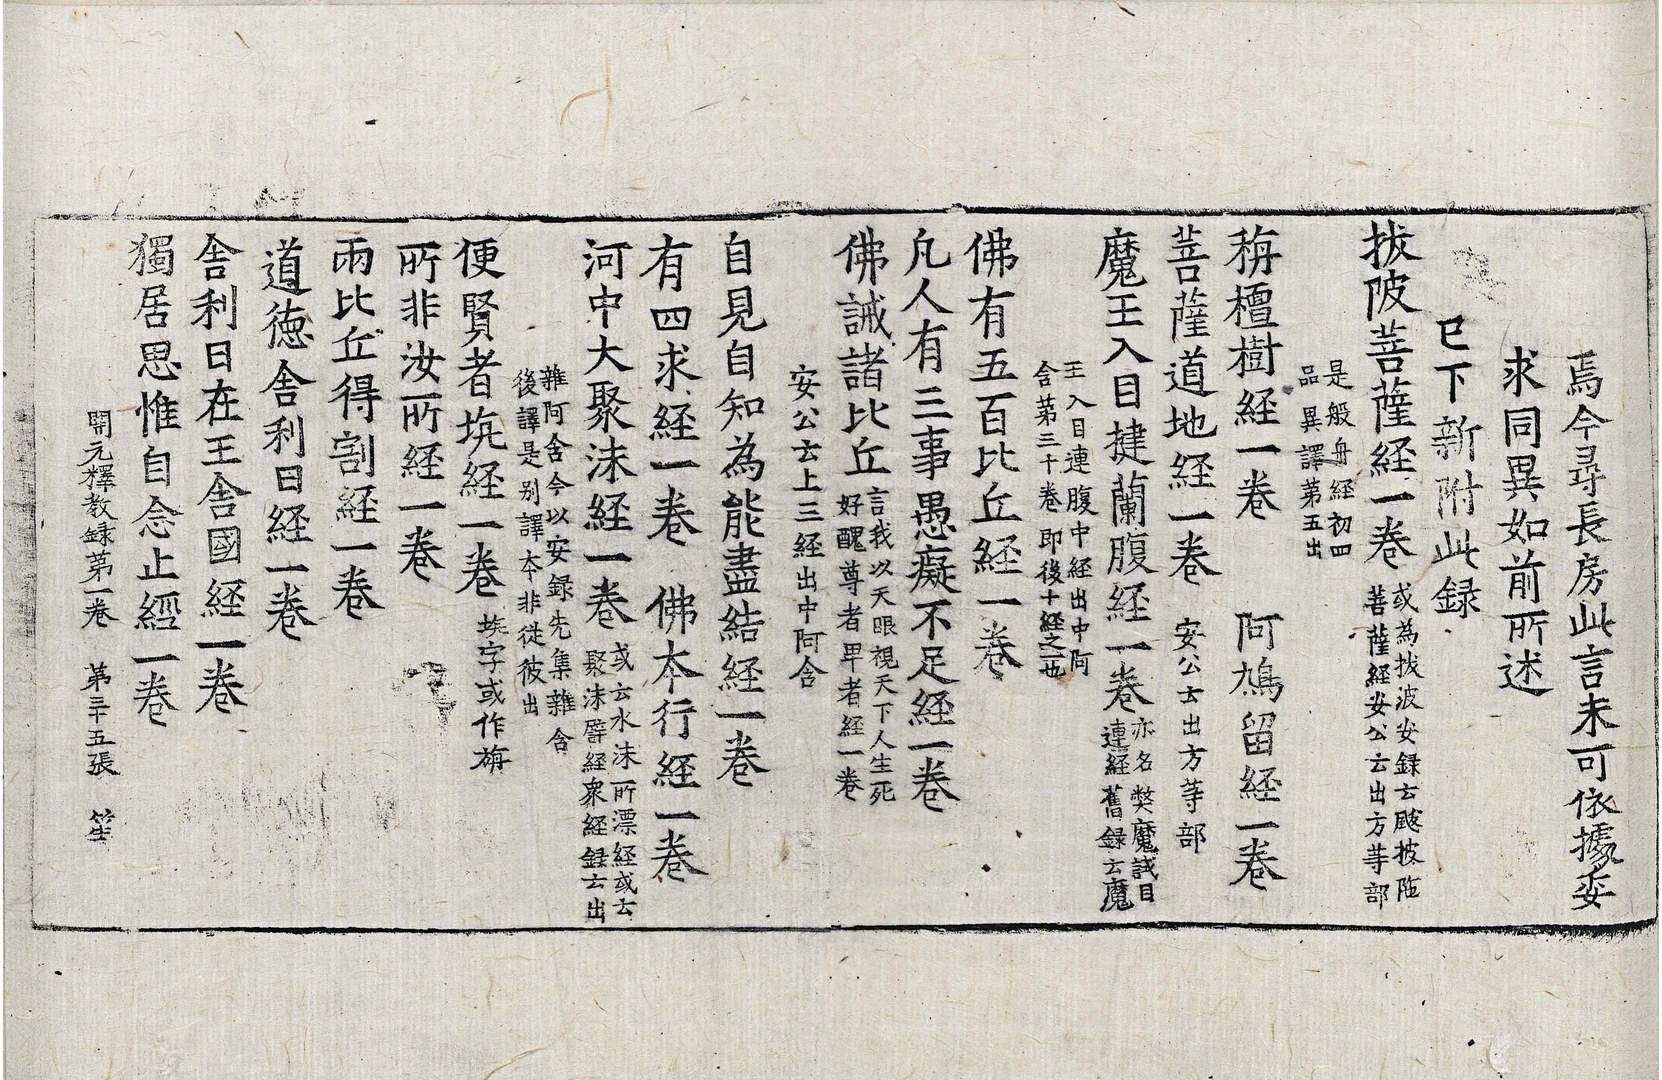 焉今尋長房此言未可依據委
求同異如前所述
已下新附此録
拔陂菩薩經一卷 或為拔波安録云颰披陁
菩薩經安公云出方等部
是般舟經初四
品異譯第五出
栴檀樹経一卷 阿鳩留経一卷
菩薩道地経一卷 安公云出方等部
魔王入目揵蘭腹経一卷 亦名弊魔試目
連経舊録云魔
王入目連腹中経出中阿
含第三十卷即後十経之一也
佛有五百比丘経一卷
凡人有三事愚癡不足経一卷
佛誡諸比丘 言我以天眼視天下人生死
好醜尊者卑者経一卷
安公云上三経出中阿含
自見自知為能盡結経一卷
有四求経一卷 佛本行経一卷
河中大聚沫経一卷 或云水沫所漂経或云
聚沫譬経衆経録云出
雜阿含今以安録先集雜含
後譯是别譯本非従彼出
便賢者坑経一卷 坑字或作旃
所非汝所経一卷
兩比丘得割経一卷
道徳舎利日経一卷
舎利日在王舎國経一卷
獨居思惟自念止經一卷
開元釋教録第一卷 第三十五張 笙